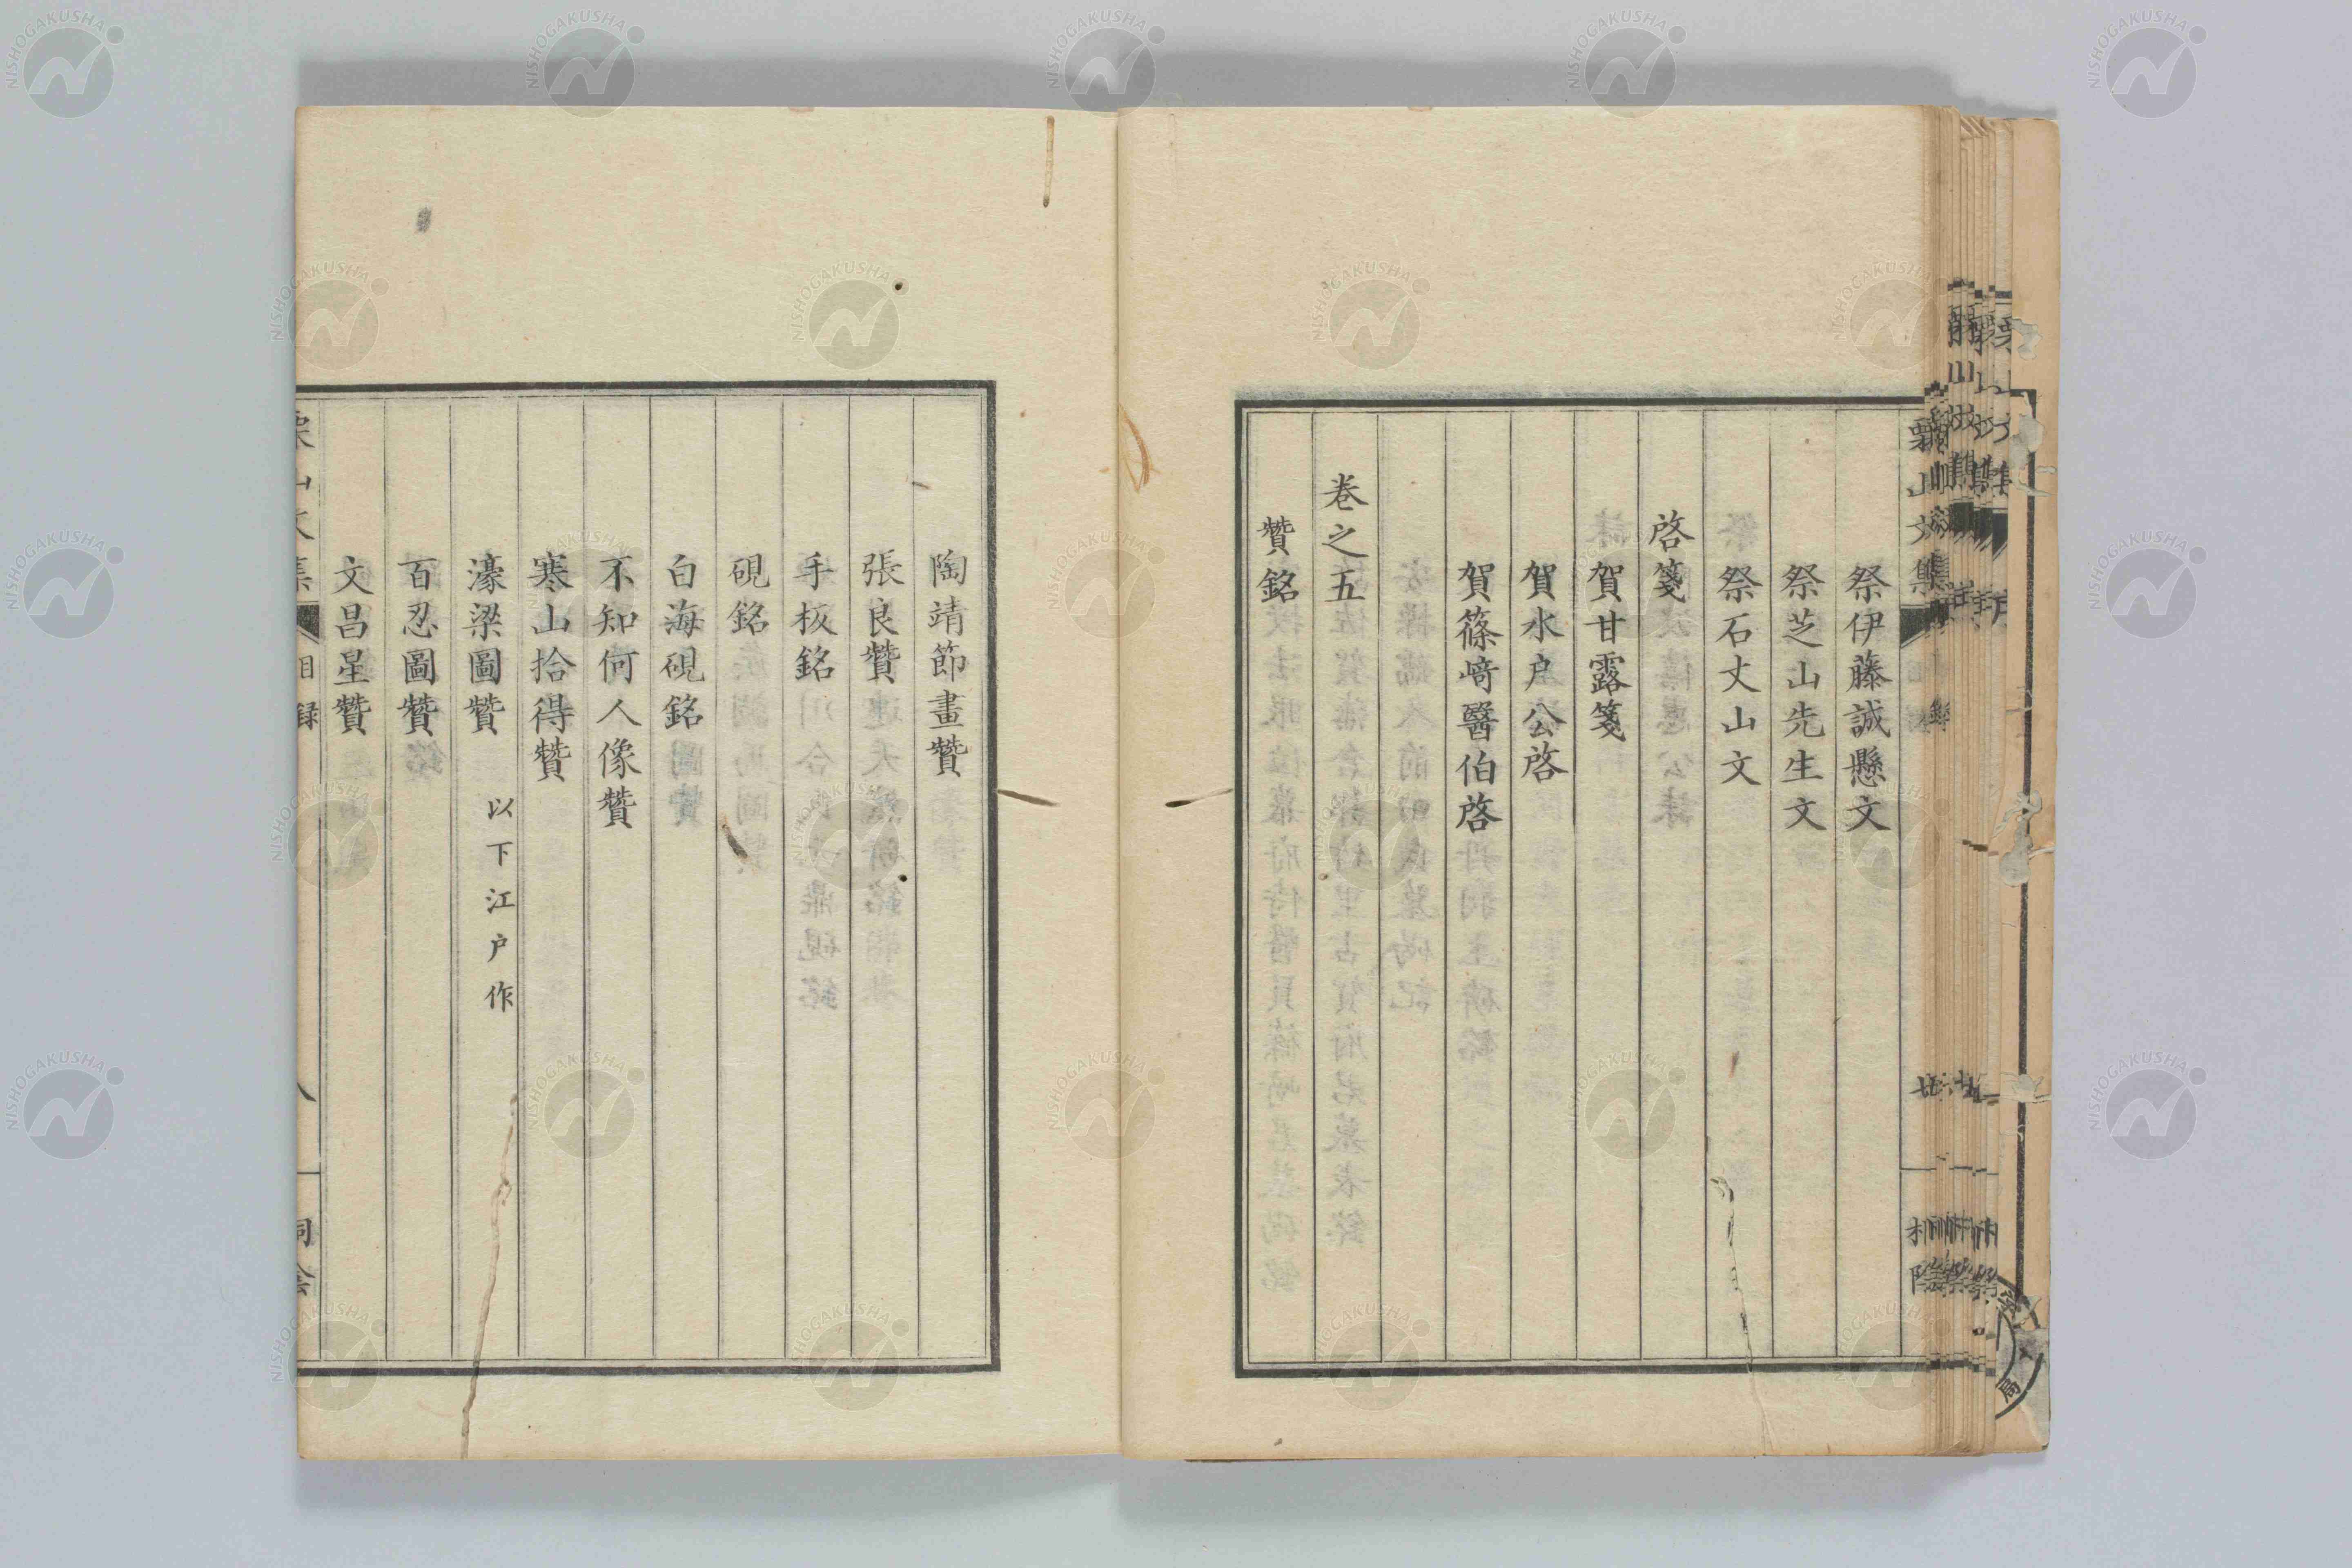 祭伊藤誠懸文
祭芝山先生文
祭石丈山文
啓箋
賀甘露箋
賀水户公啓
賀篠﨑醫伯啓
卷之五
贊銘
陶靖節畫贊
張良贊
手板銘
硯銘
白海硯銘
不知何人像贊
寒山拾得贊
濠梁圖贊
以下江户作
百忍圖贊
文昌星贊
目錄
NISHOGAKUSHA